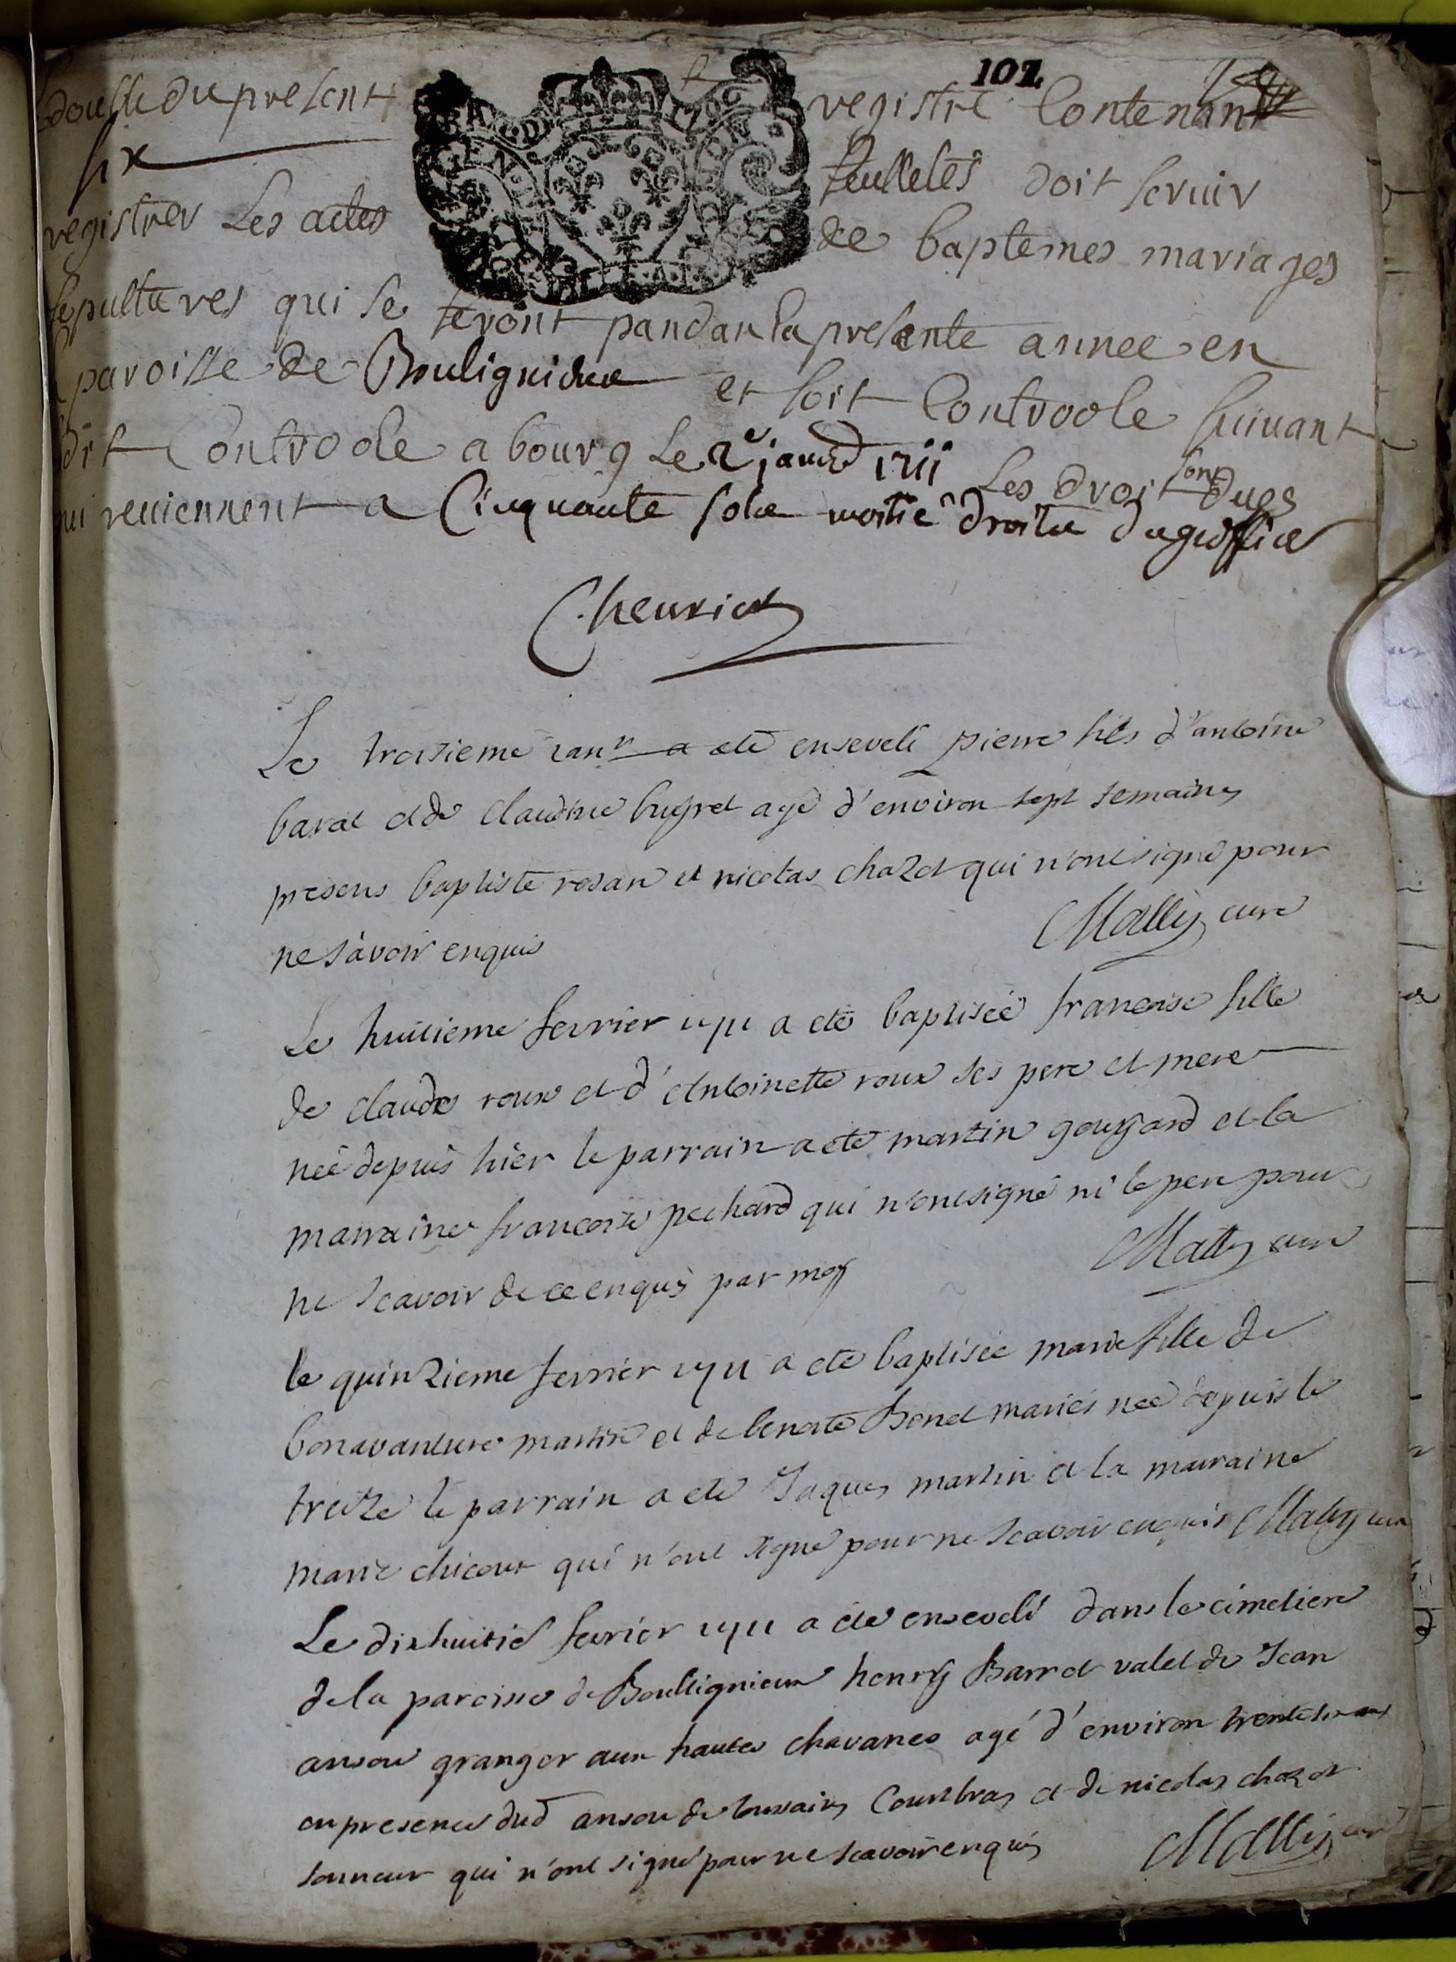 102
double du present registre Contenant
six feulletes doit servir
registrer Les actes de baptemes mariages
sepultures qui se feront pandan la presente annee en
paroisse de Boulignieux et soit Controole suivant
dit Controole a bourg Le 2e janvr 1711 Les droits sont dues
qui reviennent a Cinquante sols moitie droits du greffier
Cheurier
Le troisieme janvr a ete enseveli pierre fils d'antoine
barat et de claudine bugret agé d'environ sept semaines
presens baptiste rosan et nicolas chazot qui n'ont signé pour
ne savoir enquis Mally curé
Le huitieme fevrier 1711 a eté baptisée francoise fille
de claude roux et d'Antoinette roux ses pere et mere
née depuis hier le parrain a eté martin goujard et la
marraine francoise pechard qui n'ont signé ni le pere pour
ne scavoir de ce enquis par moy Mally curé
le quinzieme fevrier 1711 a eté baptisée marie fille de
bonavanture martin et de benoite Bonet mariés née depuis le
treize le parrain a eté Jaques martin et la marraine
marie chicour qui n'ont signé pour ne scavoir enquis Mally curé
Le dixhuitie fevrier 1711 a eté enseveli dans le cimetiere
de la paroisse de Boullignieux henry Barret valet de Jean
ansou granger aux hautes chavanes agé d'environ trente ans
en presence dud ansou de toussains Courtbras et de nicolas chazot
sonneur qui n'ont signé pour ne scavoir enquis Mally curé